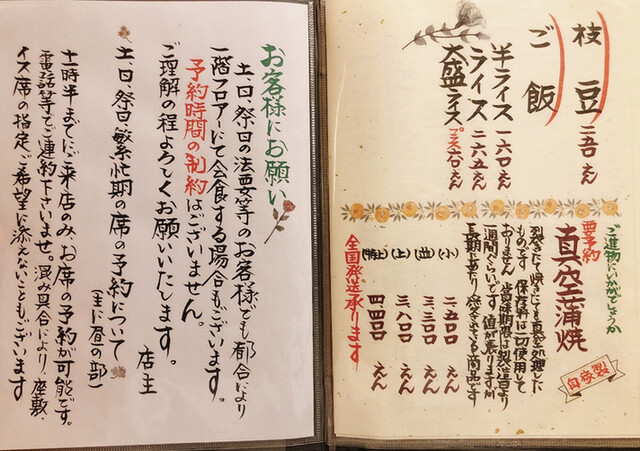 枝豆 二五〇えん
ご飯
半ライス 一六〇えん
ライス 二六五えん
大盛ライス プラス六〇えん
ご進物にいかがでしょうか
要予約
真空蒲焼
自家製
割きたて焼きたてを真空処理した
ものです 保存料は一切使用して
おりません 賞味期限は製造日より
一週間ぐらいです 値が張りますが
長期にわたり
(小) 二、五〇〇 えん
(並) 三、三〇〇 えん
(上) 三、八〇〇 えん
(特上) 四、四〇〇 えん
全国発送承ります
お客様にお願い
土、日、祭日の法要等のお客様でも都合により
一階フロアーにて会食する場合もございます。
予約時間の制約はございません。
ご理解の程よろしくお願いいたします。
店主
土、日、祭日繁忙期の席の予約について
(主に昼の部)
十一時半までにご来店のみ、お席の予約が可能です。
電話等でご連絡下さいませ。混み具合により、座敷・
イス席の指定ご希望に添えないこともございます